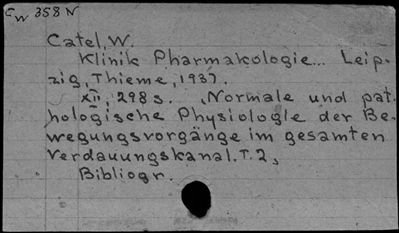 Cw 358 N
Catel, W.
Klinik Pharmakologie... Leip-
zig, Thieme, 1937.
XII, 298 s. „Normale und pat-
hologische Physiologie der Be-
wegungsvorgänge im gesamten
Verdauungskanal. T. 2,
Bibliogr.